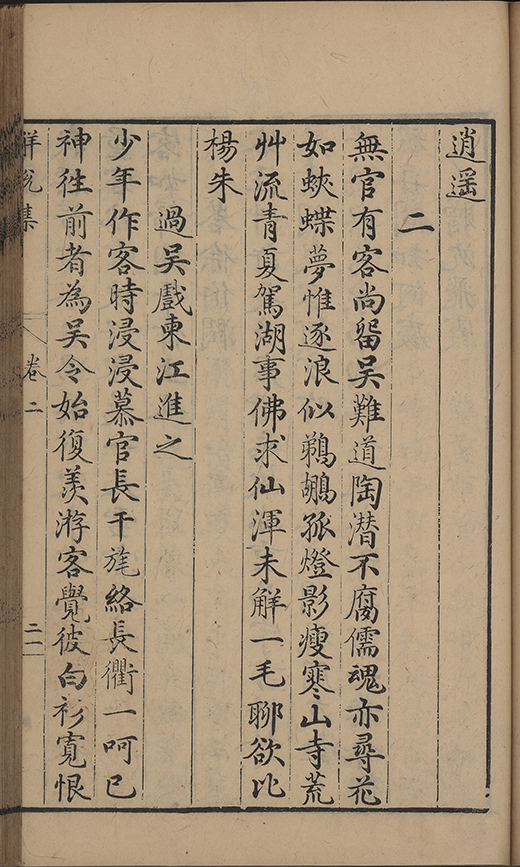 逍遥
二
無官有客尚留吳難道陶潛不腐儒魂亦尋花
如蛺蝶夢惟逐浪似鵜鶘孤燈影瘦寒山寺荒
艸流青夏駕湖事佛求仙渾未解一毛聊欲比
楊朱
過吳戲柬江進之
少年作客時浸浸慕官長干旄絡長衢一呵已
神徃前者為吳令始復羡游客覺彼白衫寬恨
卷二
二一